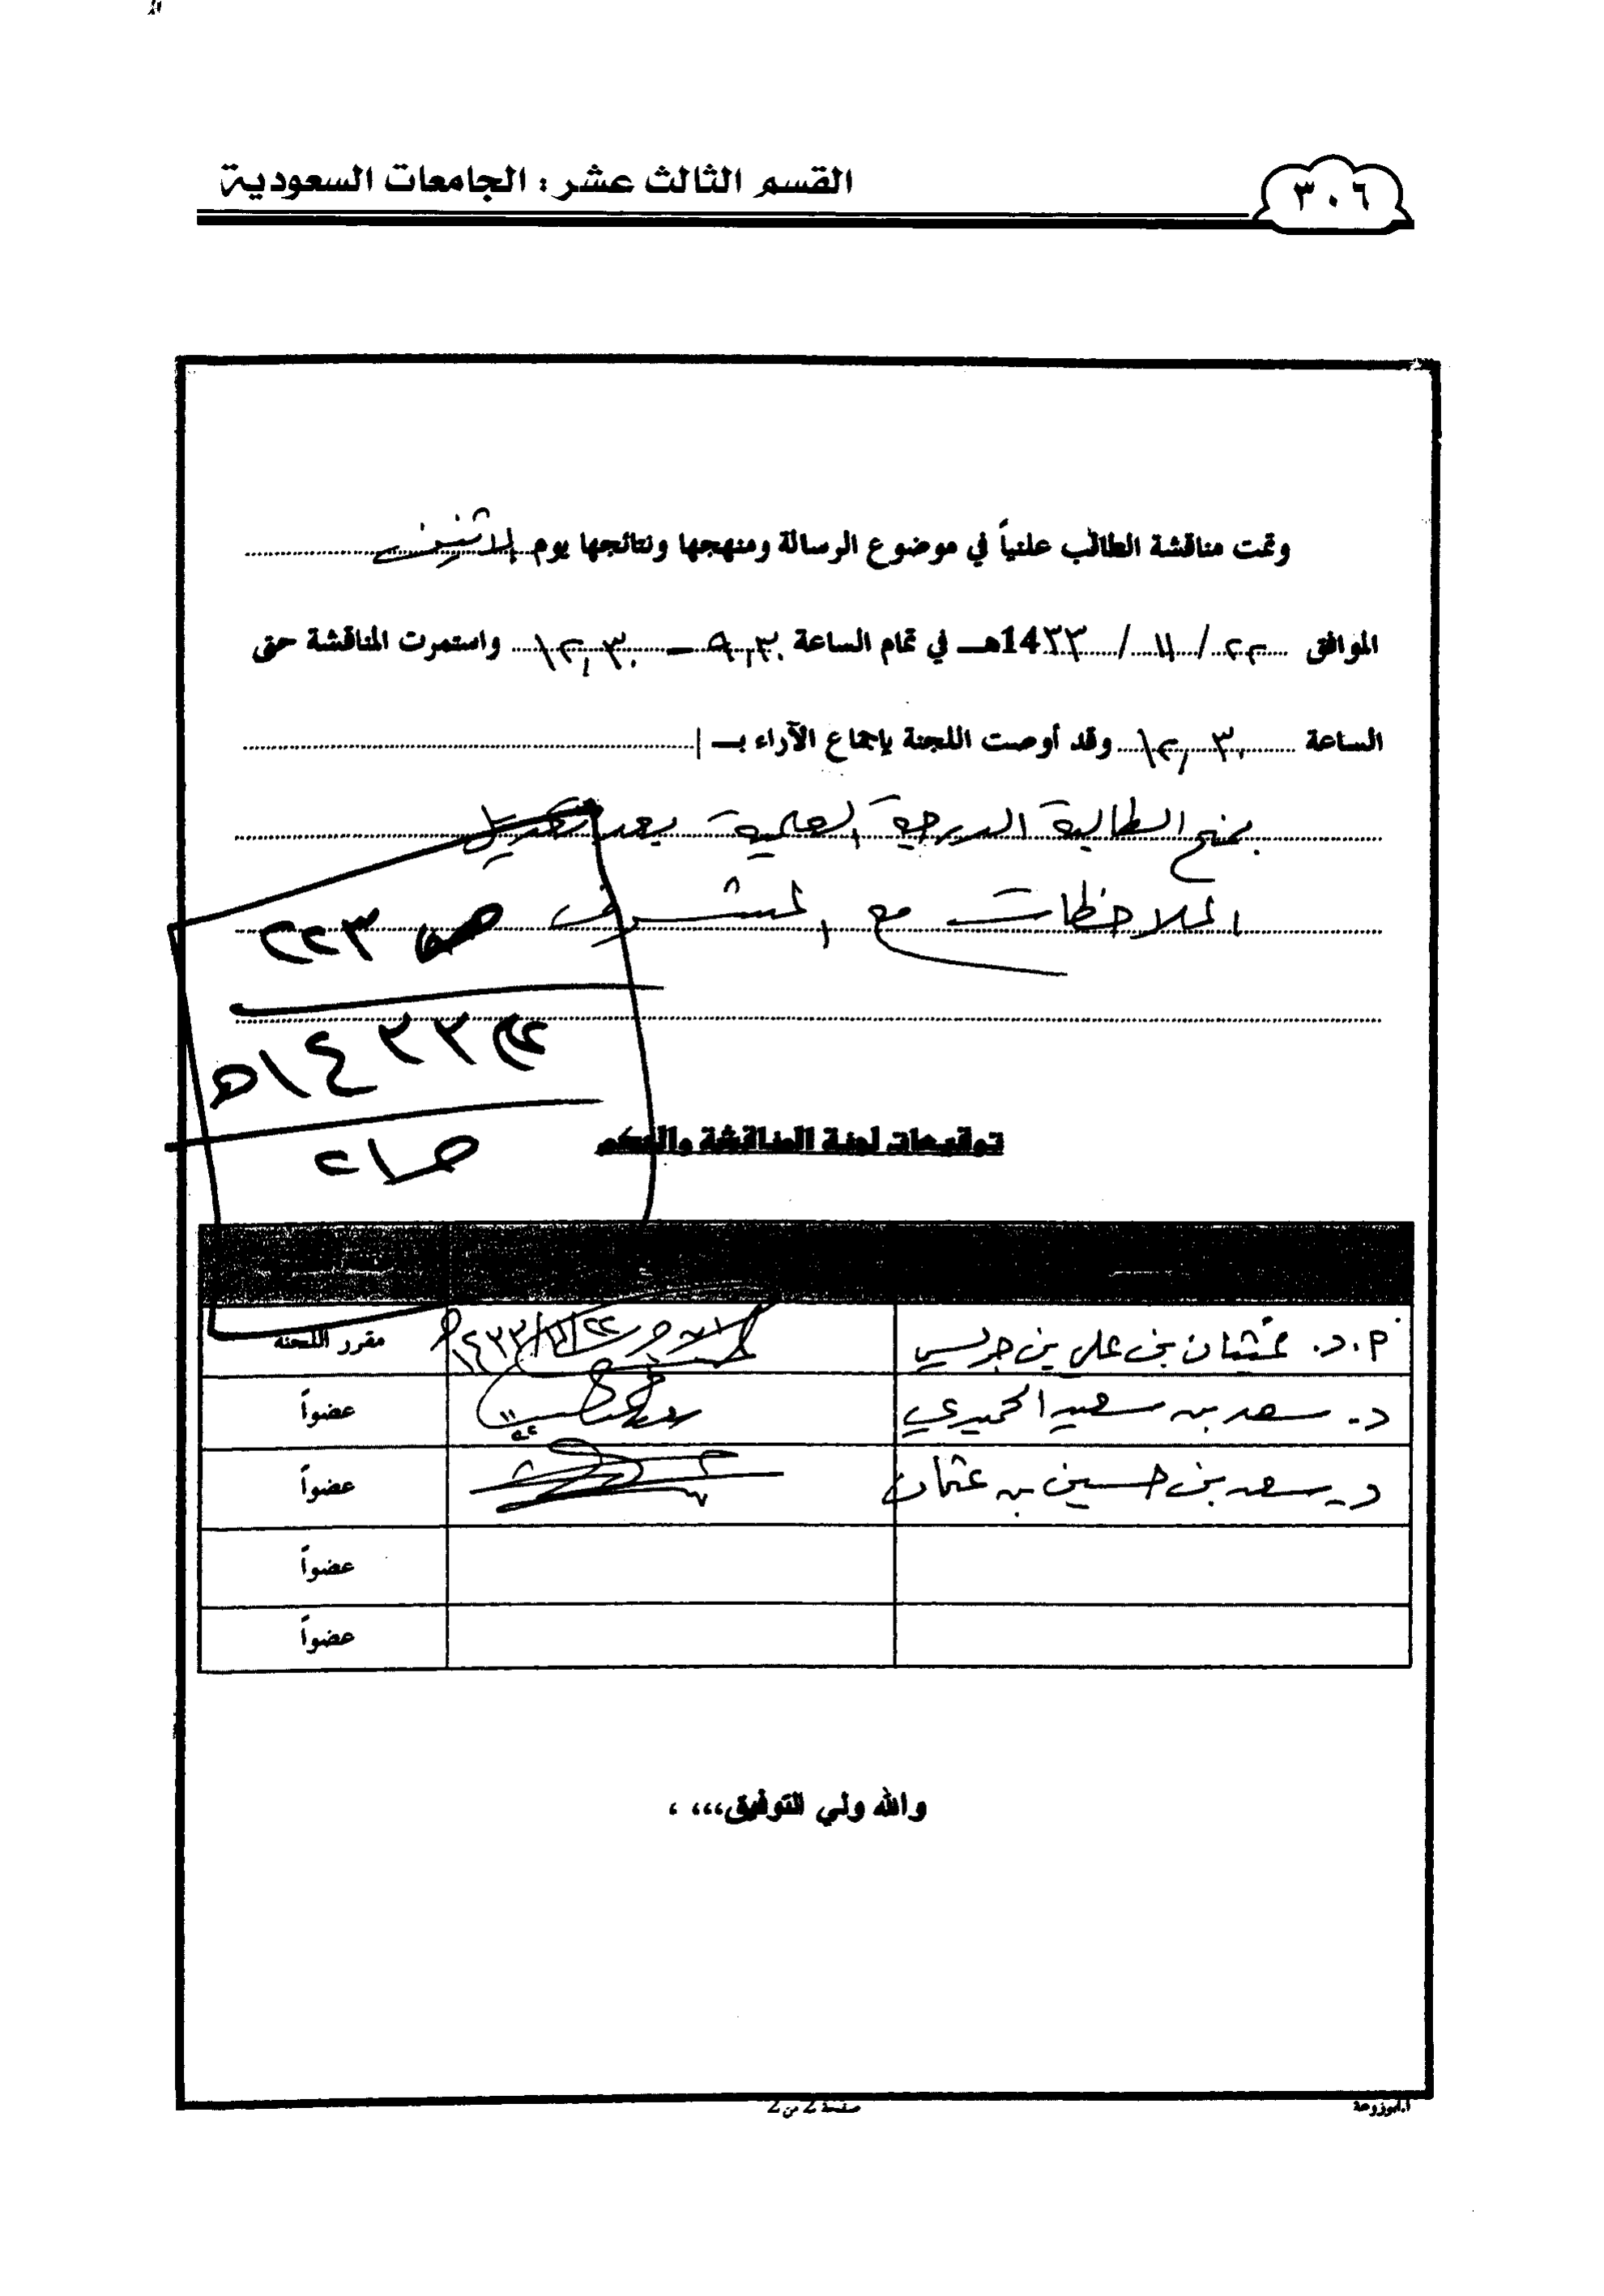 القسم الثالث عشر : الجامعات السعودية
٣٠٦
وتمت مناقشة الطالب علنياً في موضوع الرسالة ومنهجها ونتائجها يوم الاثنين
الموافق ٢٢ / ١١ / 14٣٣هـ في تمام الساعة ٩,٣٠ – ١٢,٣٠ واستمرت المناقشة حتى
الساعة ١٢,٣٠ وقد أوصت اللجنة بإجماع الآراء بـ
بمنح الطالبة الدرجة العلمية بعد تعديل
الملاحظات مع المشرف
ص ٢٢٣
١٤٣٣هـ
توقيعات لجنة المناقشة والحكم
عثمان بن علي بن جريس
مقرر اللجنة
د. سعد بن سعيد الحميدي
عضواً
د. سعد بن حسين بن عثمان
عضواً
عضواً
عضواً
والله ولي التوفيق،،، ،
صفحة 2 من 2